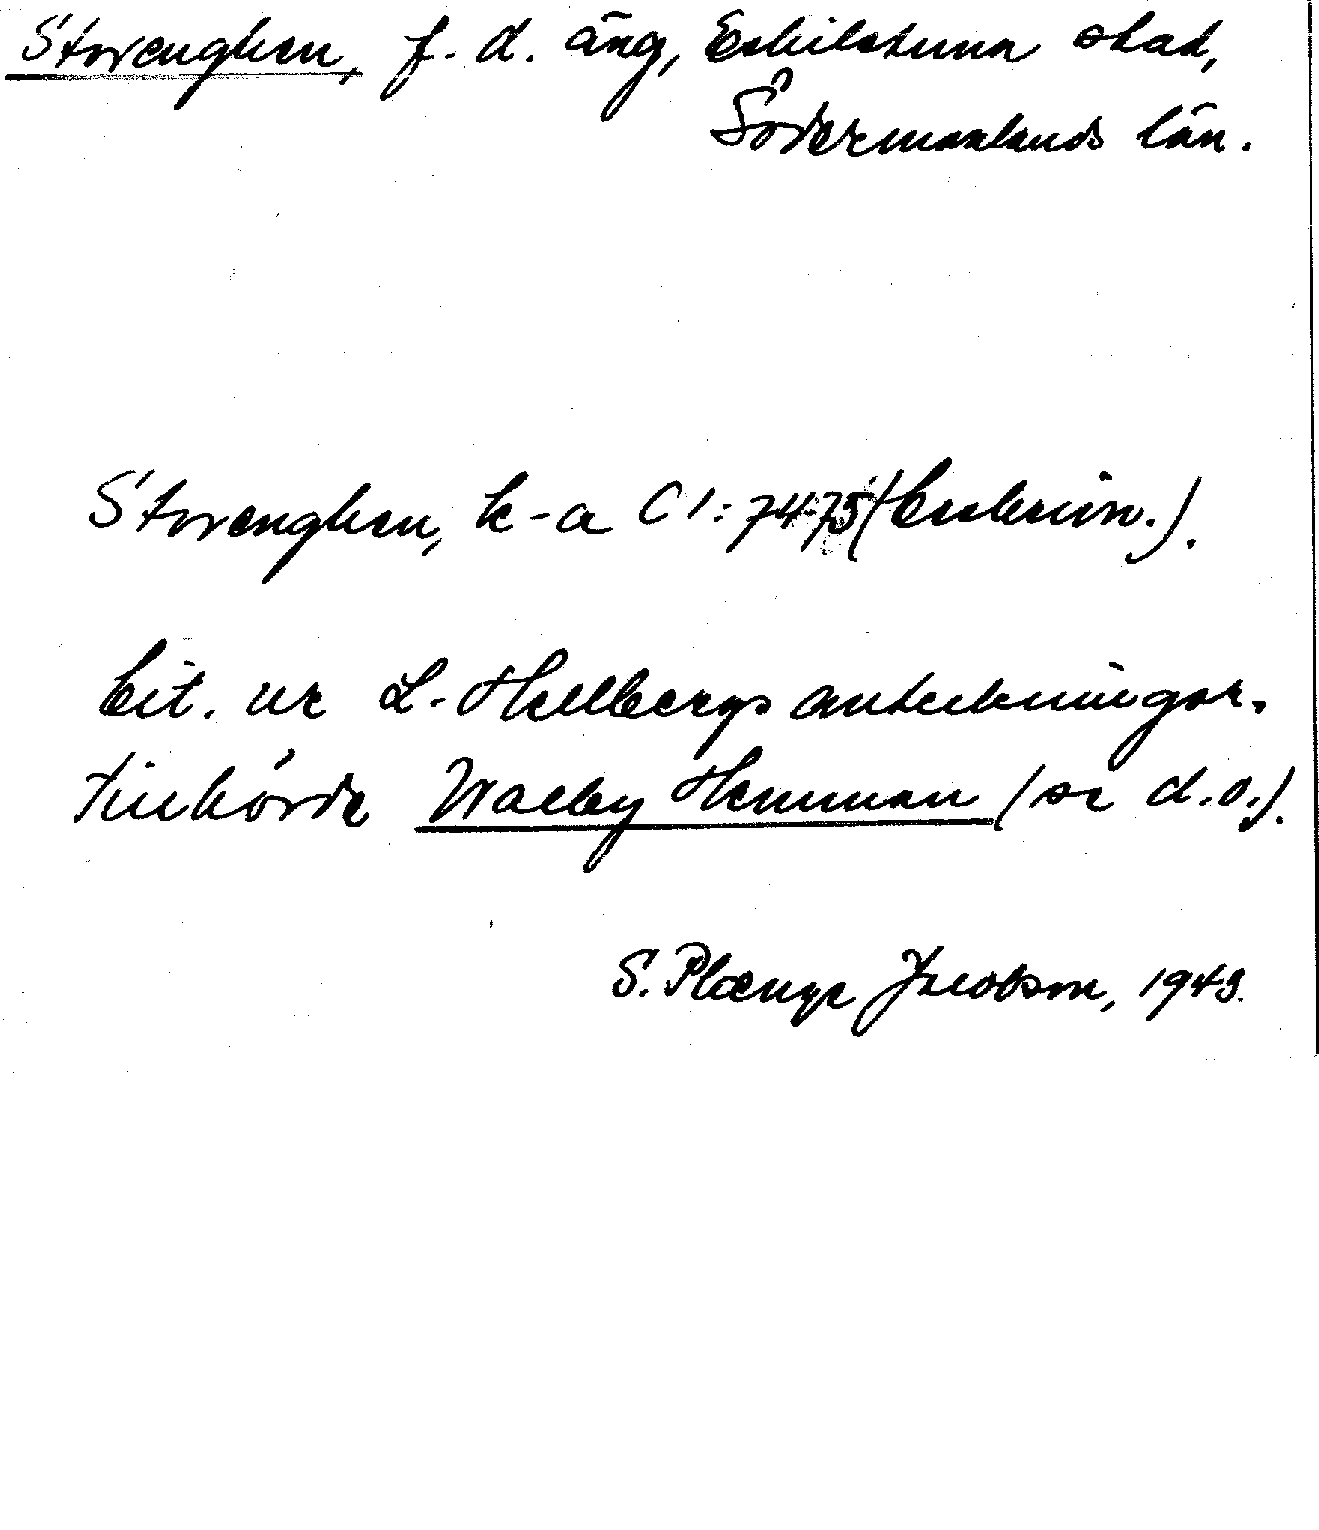 Storenghen, f. d. äng, Eskilstuna stad,
Södermanlands län.
Storenghen, k-a C 1: 74-75 (
Cit. ur L. Hellbergs anteckningar.
Tillhörde Walby Hemman (se d.o.).
S. Plænge Jacobson, 1943.